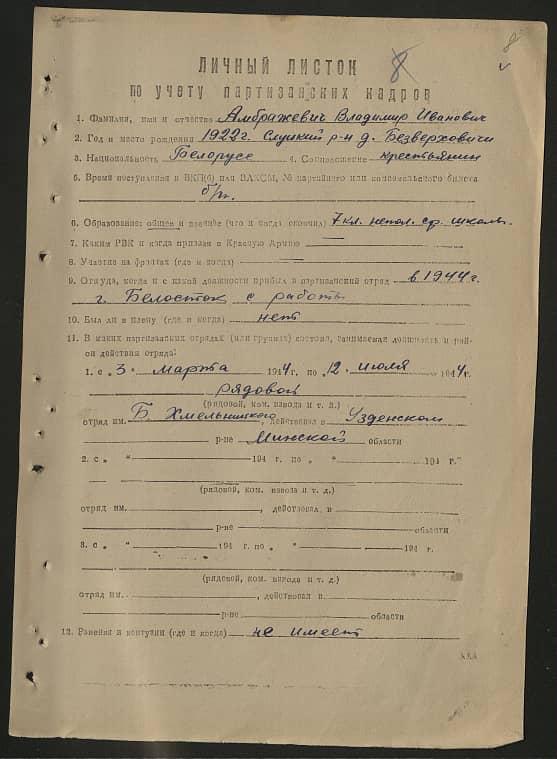 8
8
ЛИЧНЫЙ ЛИСТОК
по учету партизанских кадров
1. Фамилия, имя и отчество Амбражевич Владимир Иванович
2. Год и место рождения 1922 г. Слуцкий р-н д. Безверховичи
3. Национальность Белорусс 4. Соцположение крестьянин
5. Время поступления в ВКП(б) или ВЛКСМ, № партийного или комсомольского билета
б/п.
6. Образование: общее и военное (что и когда окончил) 7 кл. непол. ср. школы.
7. Каким РВК и когда призван в Красную Армию
8. Участие на фронтах (где и когда)
9. Откуда, когда и с какой должности прибыл в партизанский отряд в 1944 г.
г. Белосток с работы
10. Был ли в плену (где и когда) нет
11. В каких партизанских отрядах (или группах) состоял, занимаемая должность и рай-
он действия отряда:
1. с „3" марта 1944 г. по „12" июля 1944 г.
рядовой
(рядовой, ком. взвода и т. д.)
отряд им. Б. Хмельницкого, действовал в Узденском
р-не Минской области
2. с „ " 194 г. по „ " 194 г.
(рядовой, ком. взвода и т. д.)
отряд им. , действовал в
р-не области
3. с „ " 194 г. по „ " 194 г.
(рядовой, ком. взвода и т. д.)
отряд им. , действовал в
р-не области
12. Ранения и контузии (где и когда) не имеет